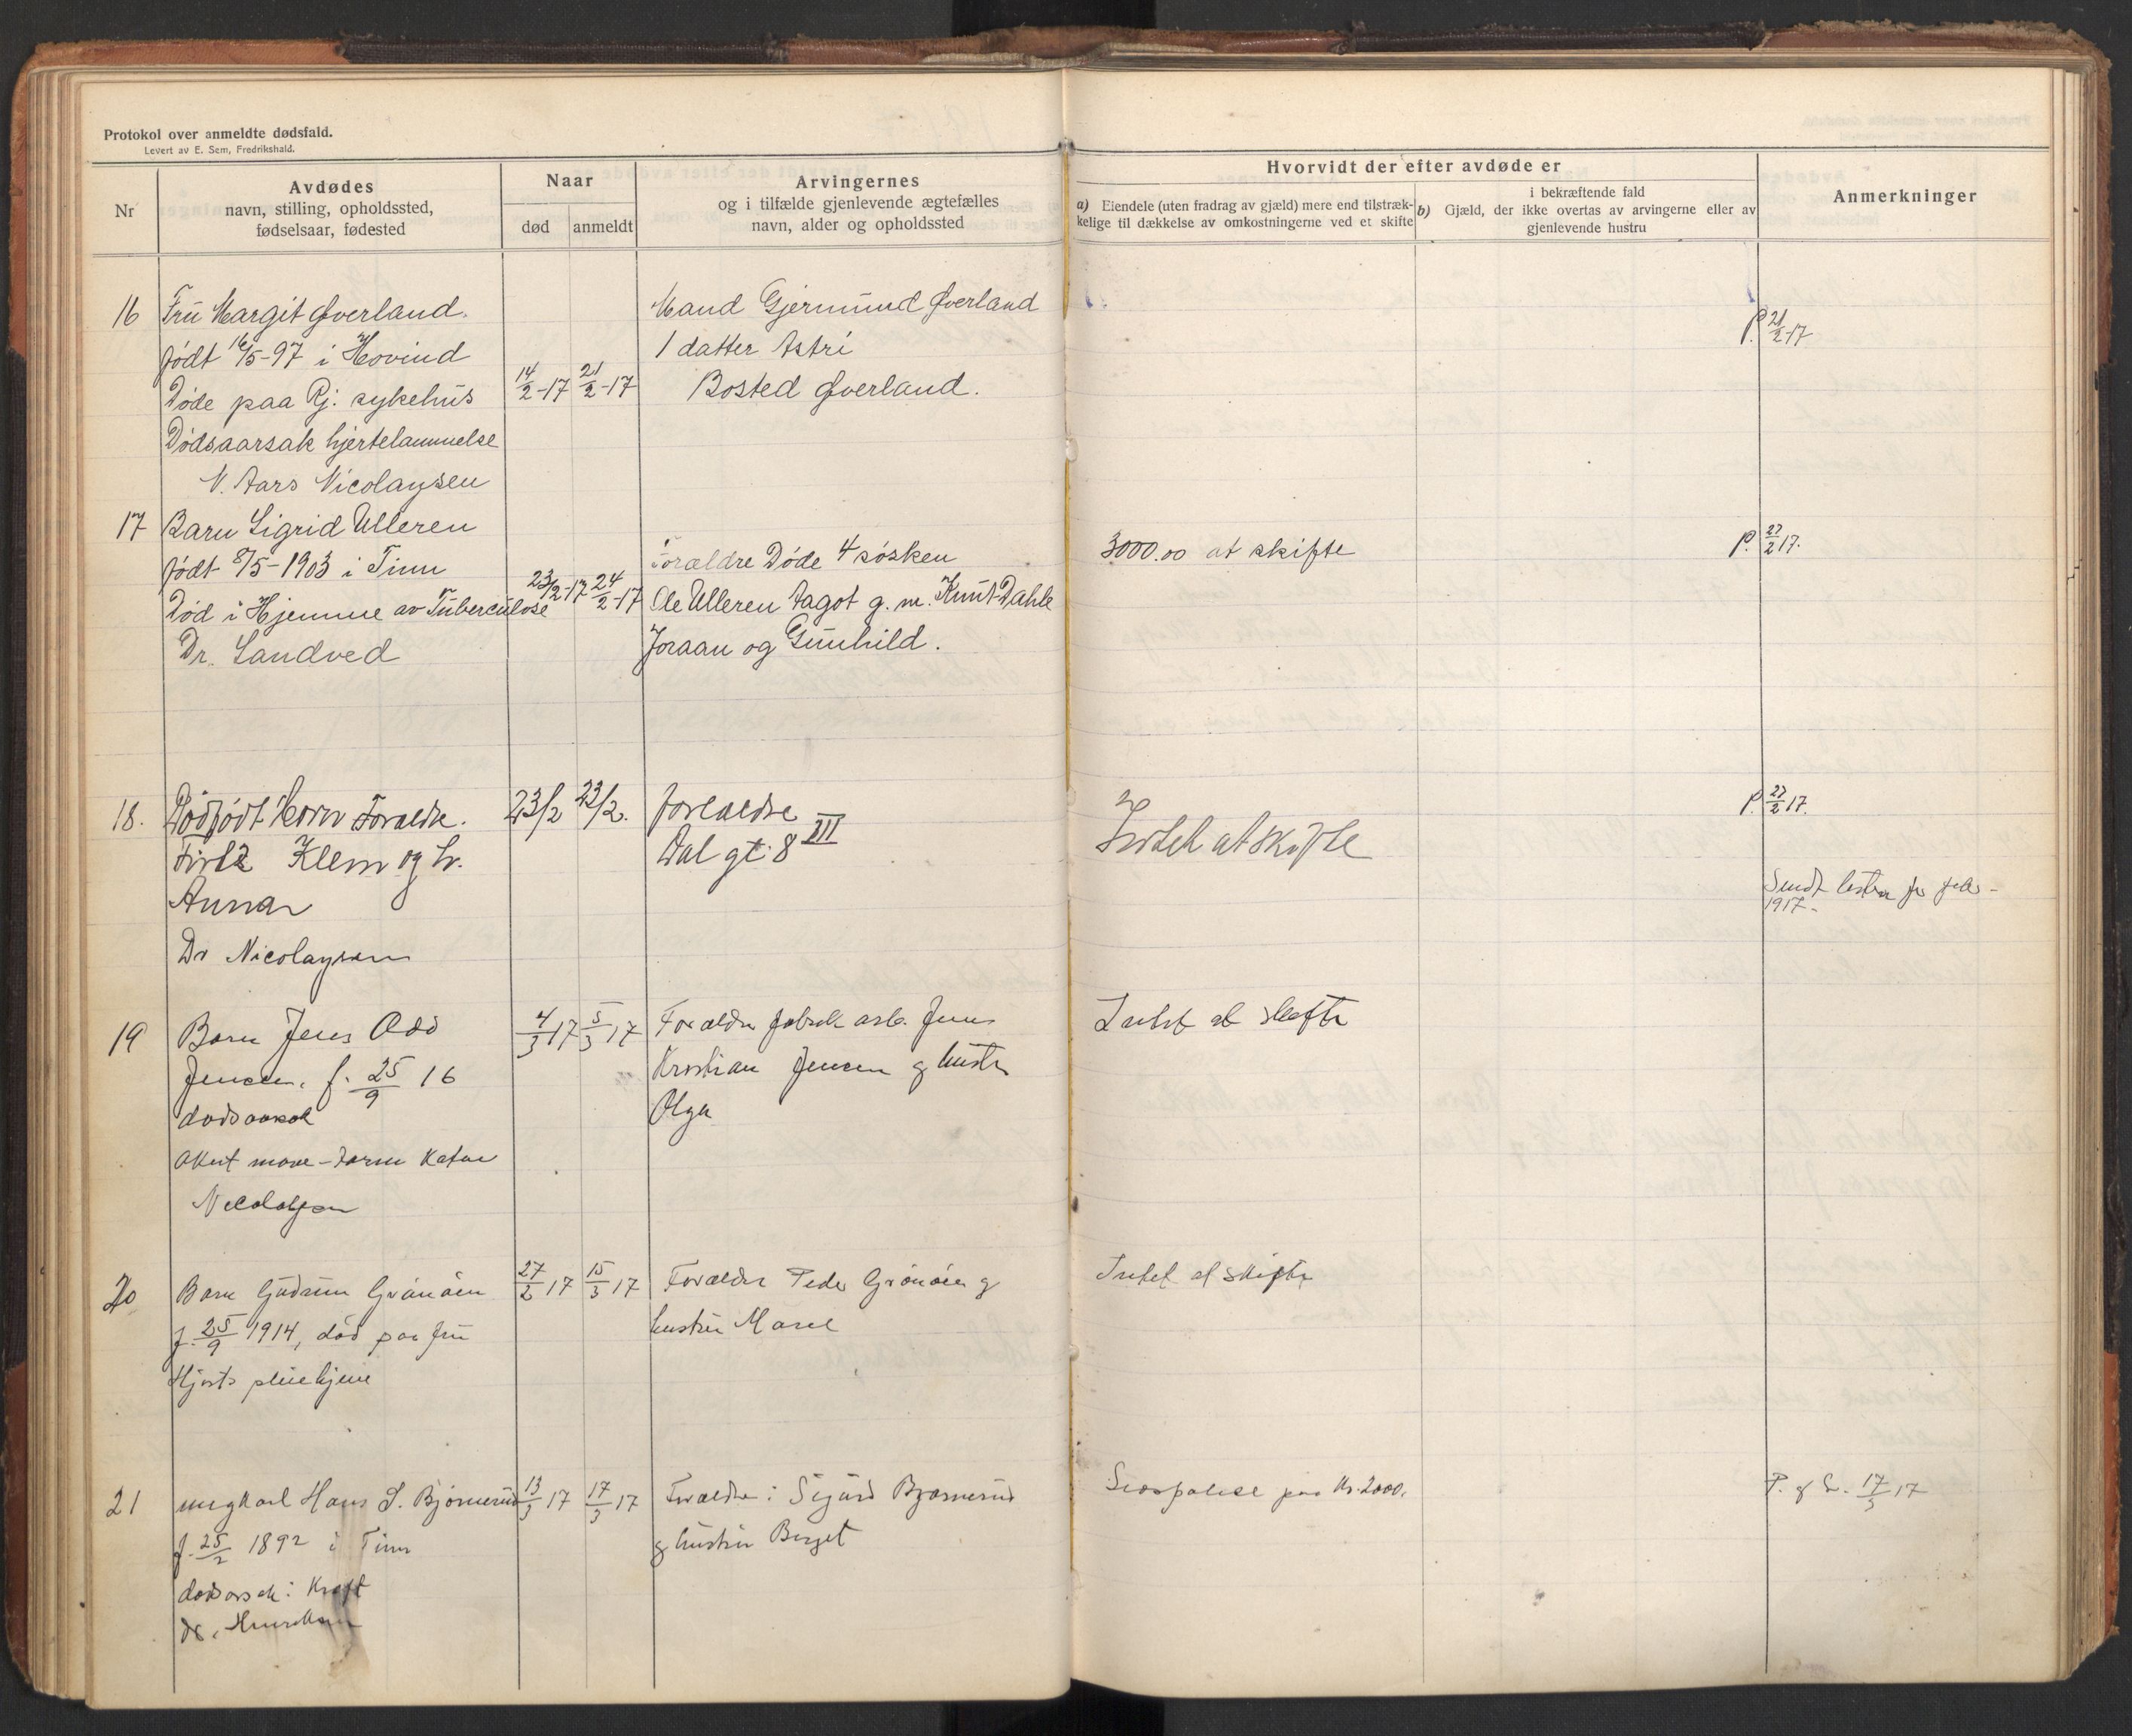 Protokol over anmeldte dødsfald.
Levert av E. Sem, Fredrikshald.
Nr
Avdødes
navn, stilling, opholdssted,
fødselsaar, fødested
Naar
død
anmeldt
Arvingernes
og i tilfælde gjenlevende ægtefælles
navn, alder og opholdssted
Hvorvidt der efter avdøde er
a) Eiendele (uten fradrag av gjæld) mere end tilstræk-
kelige til dækkelse av omkostningerne ved et skifte
i bekræftende fald
b) Gjæld, der ikke overtas av arvingerne eller av
gjenlevende hustru
Anmerkninger
16
Fru Margit Øverland.
født 16/5-97 i Hovind
Døde paa Rj. sykehus
Dødsaarsak hjertelammelse
N. Aars Nicolaysen
14/2-17
21/2-17
Mand Gjermund Øverland
1 datter Astri
Bosted Øverland.
P. 21/2-17
17
Barn Sigrid Ulleren
født 8/5-1903 i Tinn
Død i Hjemme av Tuberculose
Dr. Sandved
23/2-17
24/2-17
Forældre Døde 4 søsken
Ole Ulleren Aagot g. m. Knut Dahle
Joraan og Gunhild.
3000.00 at skifte
P. 27/2 17.
18.
Dødfødt Forældre.
Klem og h.
Anna
Dr Nicolaysen
23/2
23/2.
forældre
Dal gt. 8 III
Intet at skifte
P. 27/2 17.
Sendt listen for febr-
1917-
19
Barn Jens Odd
Jensen. f. 25/9 16
dødsaarsak
akut mave-tarm katar
Nicolaysen
4/3 17
5/3 17
Forældre fabrik arb. Jens
Kristian Jensen g hustru
Olga
Intet at skifte
20
Barn Gudrun Grønøen
f. 25/9 1914, død paa fru
Hjorts pleiehjem
27/2 17
15/3 17
Forældre Peder Grønøen g
hustru Marie
Intet at skifte
21
ungkarl Hans S. Bjørnerud
f. 25/2 1892 i Tinn
dødsarsak: Kræft
dr. Henriksen
13/3 17
17/3 17
Forældre: Sigurd Bjørnerud
g hustru Berget
Livspolise paa Kr. 2000.
P. g L. 17/3 17